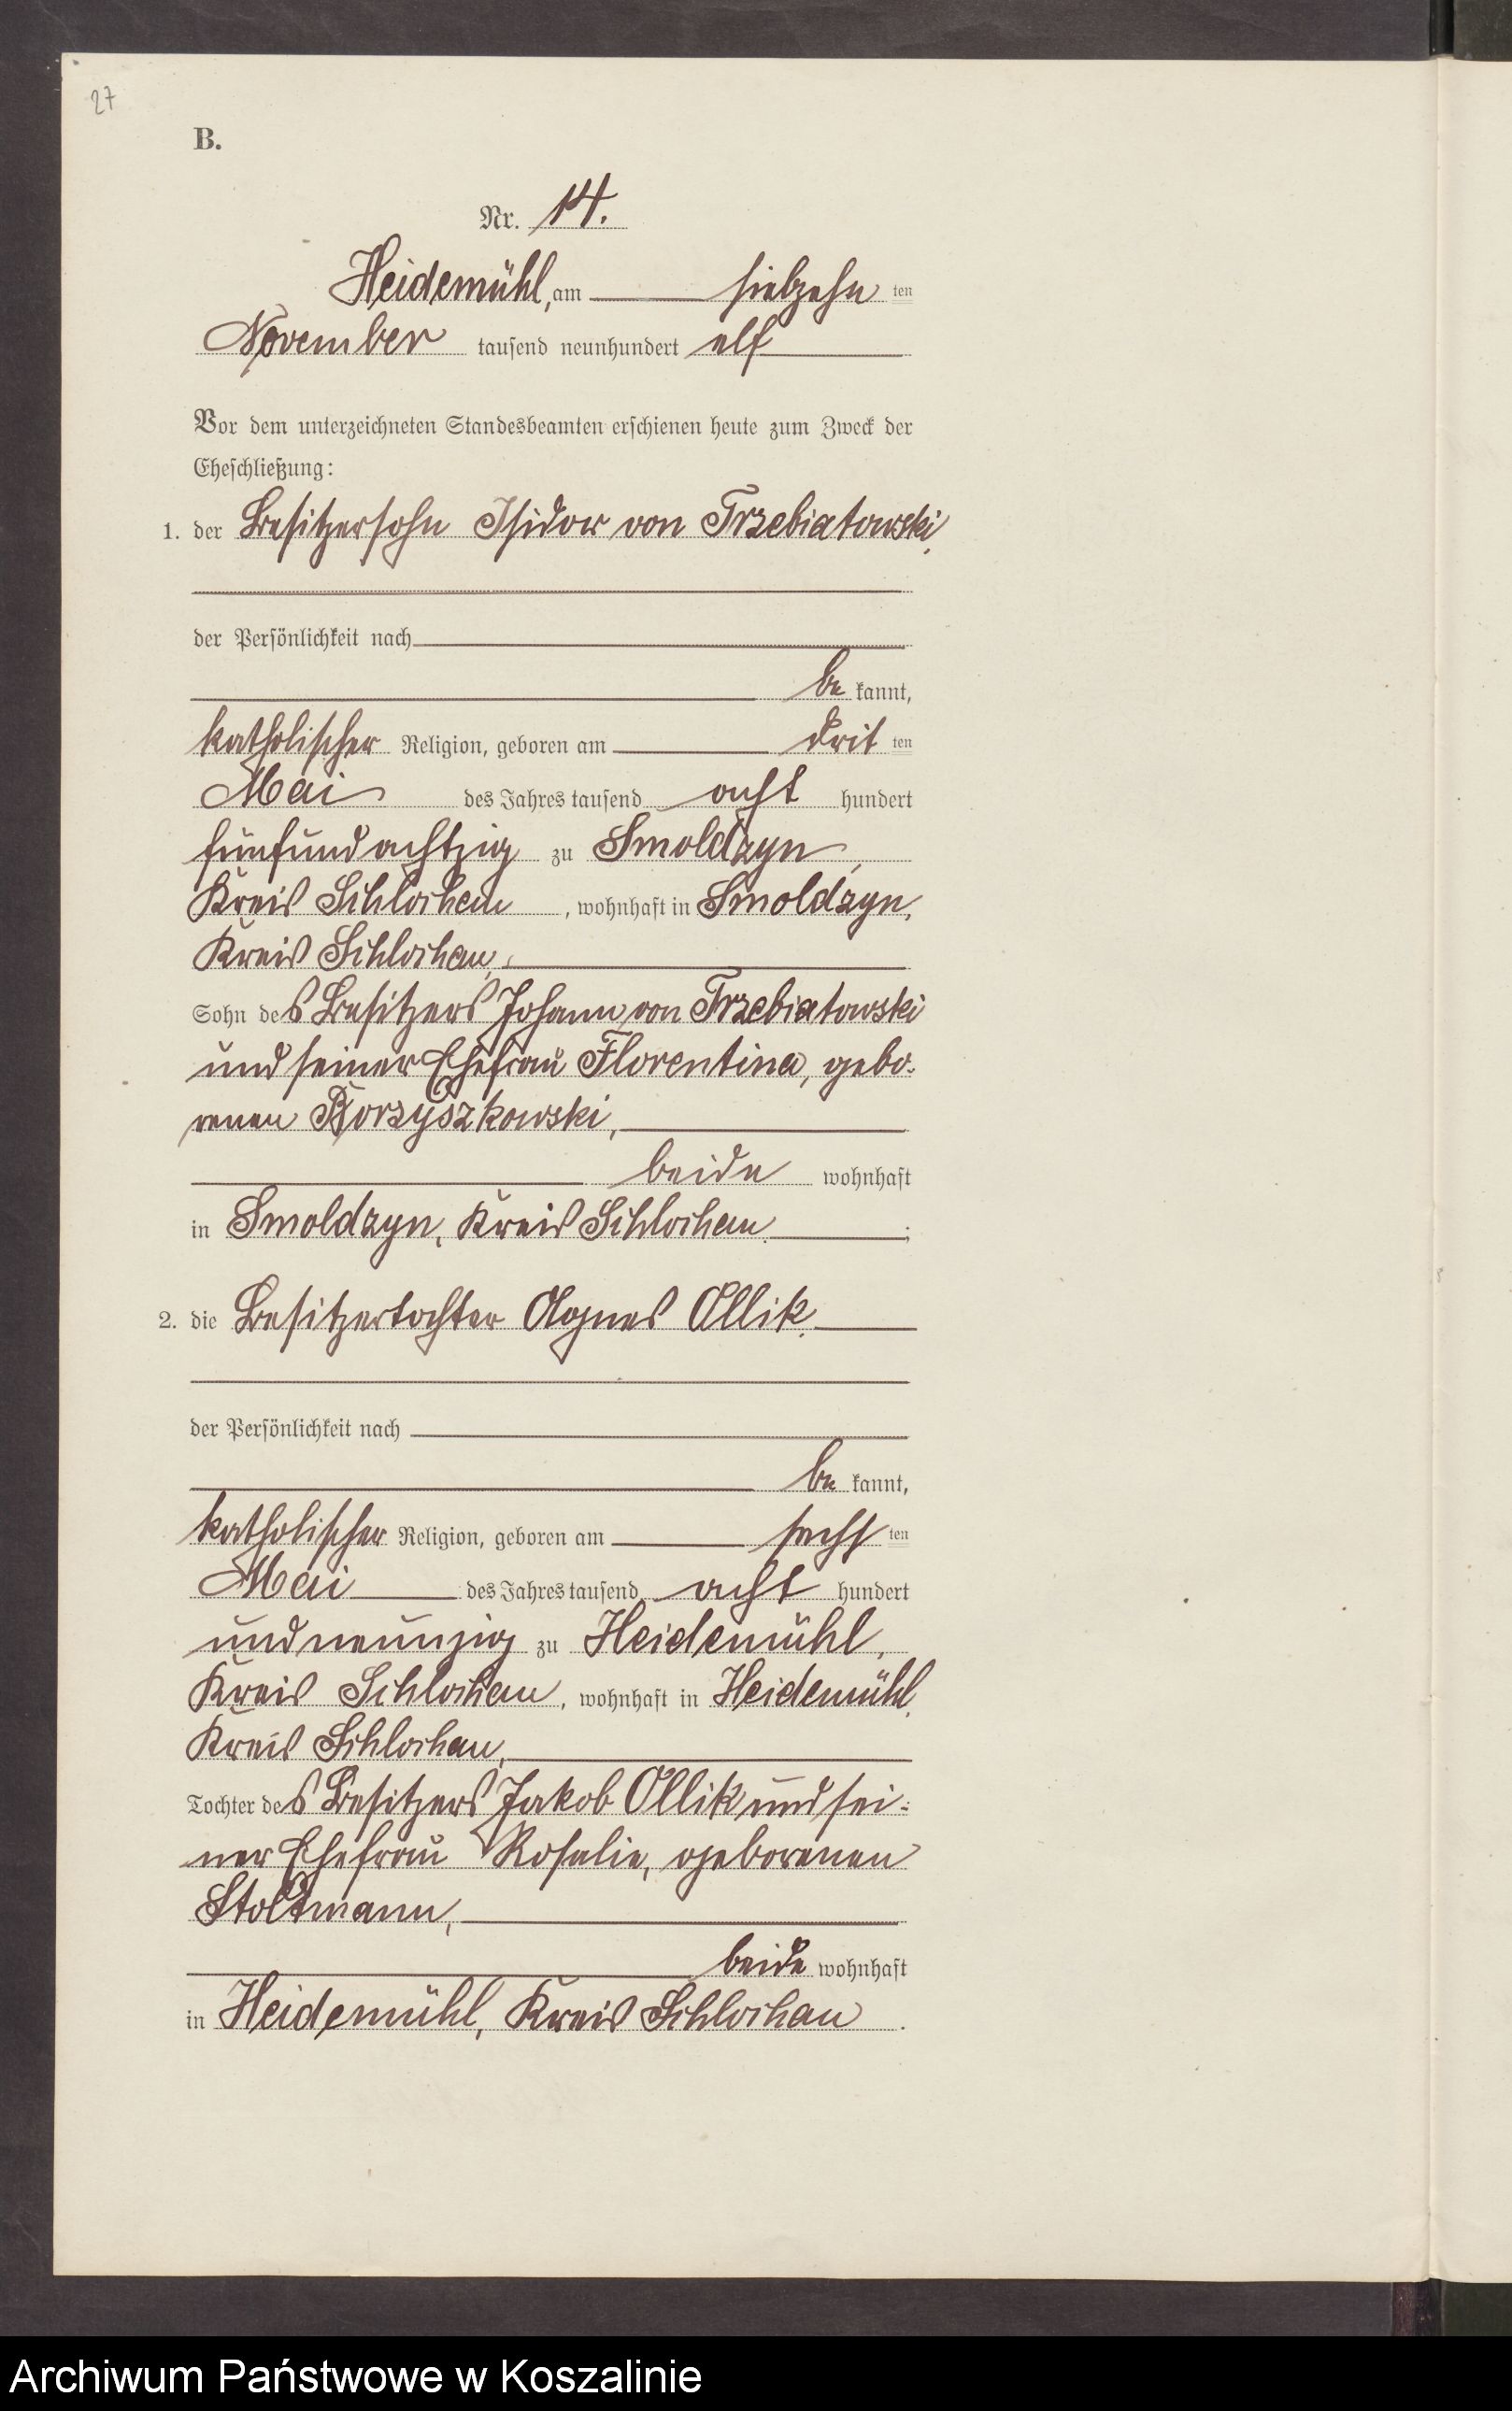 27
B.
Nr. 14.
Heidemühl, am siebzehn ten
November tausend neunhundert elf
Vor dem unterzeichneten Standesbeamten erschienen heute zum Zweck der
Eheschließung:
1. der Besitzersohn Isidor von Trzebiatowski,
der Persönlichkeit nach
be kannt,
katholischer Religion, geboren am drit ten
Mai des Jahres tausend acht hundert
fünfundachtzig zu Smoldzyn,
Kreis Schlochau, wohnhaft in Smoldzyn,
Kreis Schlochau,
Sohn des Besitzers Johann von Trzebiatowski
und seiner Ehefrau Florentina, gebo-
renen Borzyszkowski,
beide wohnhaft
in Smoldzyn, Kreis Schlochau;
2. die Besitzertochter Agnes Ollik,
der Persönlichkeit nach
be kannt,
katholischer Religion, geboren am sechs ten
Mai des Jahres tausend acht hundert
undneunzig zu Heidemühl,
Kreis Schlochau, wohnhaft in Heidemühl,
Kreis Schlochau,
Tochter des Besitzers Jakob Ollik und sei-
ner Ehefrau Rosalie, geborenen
Stoltmann,
beide wohnhaft
in Heidemühl, Kreis Schlochau.
Archiwum Państwowe w Koszalinie